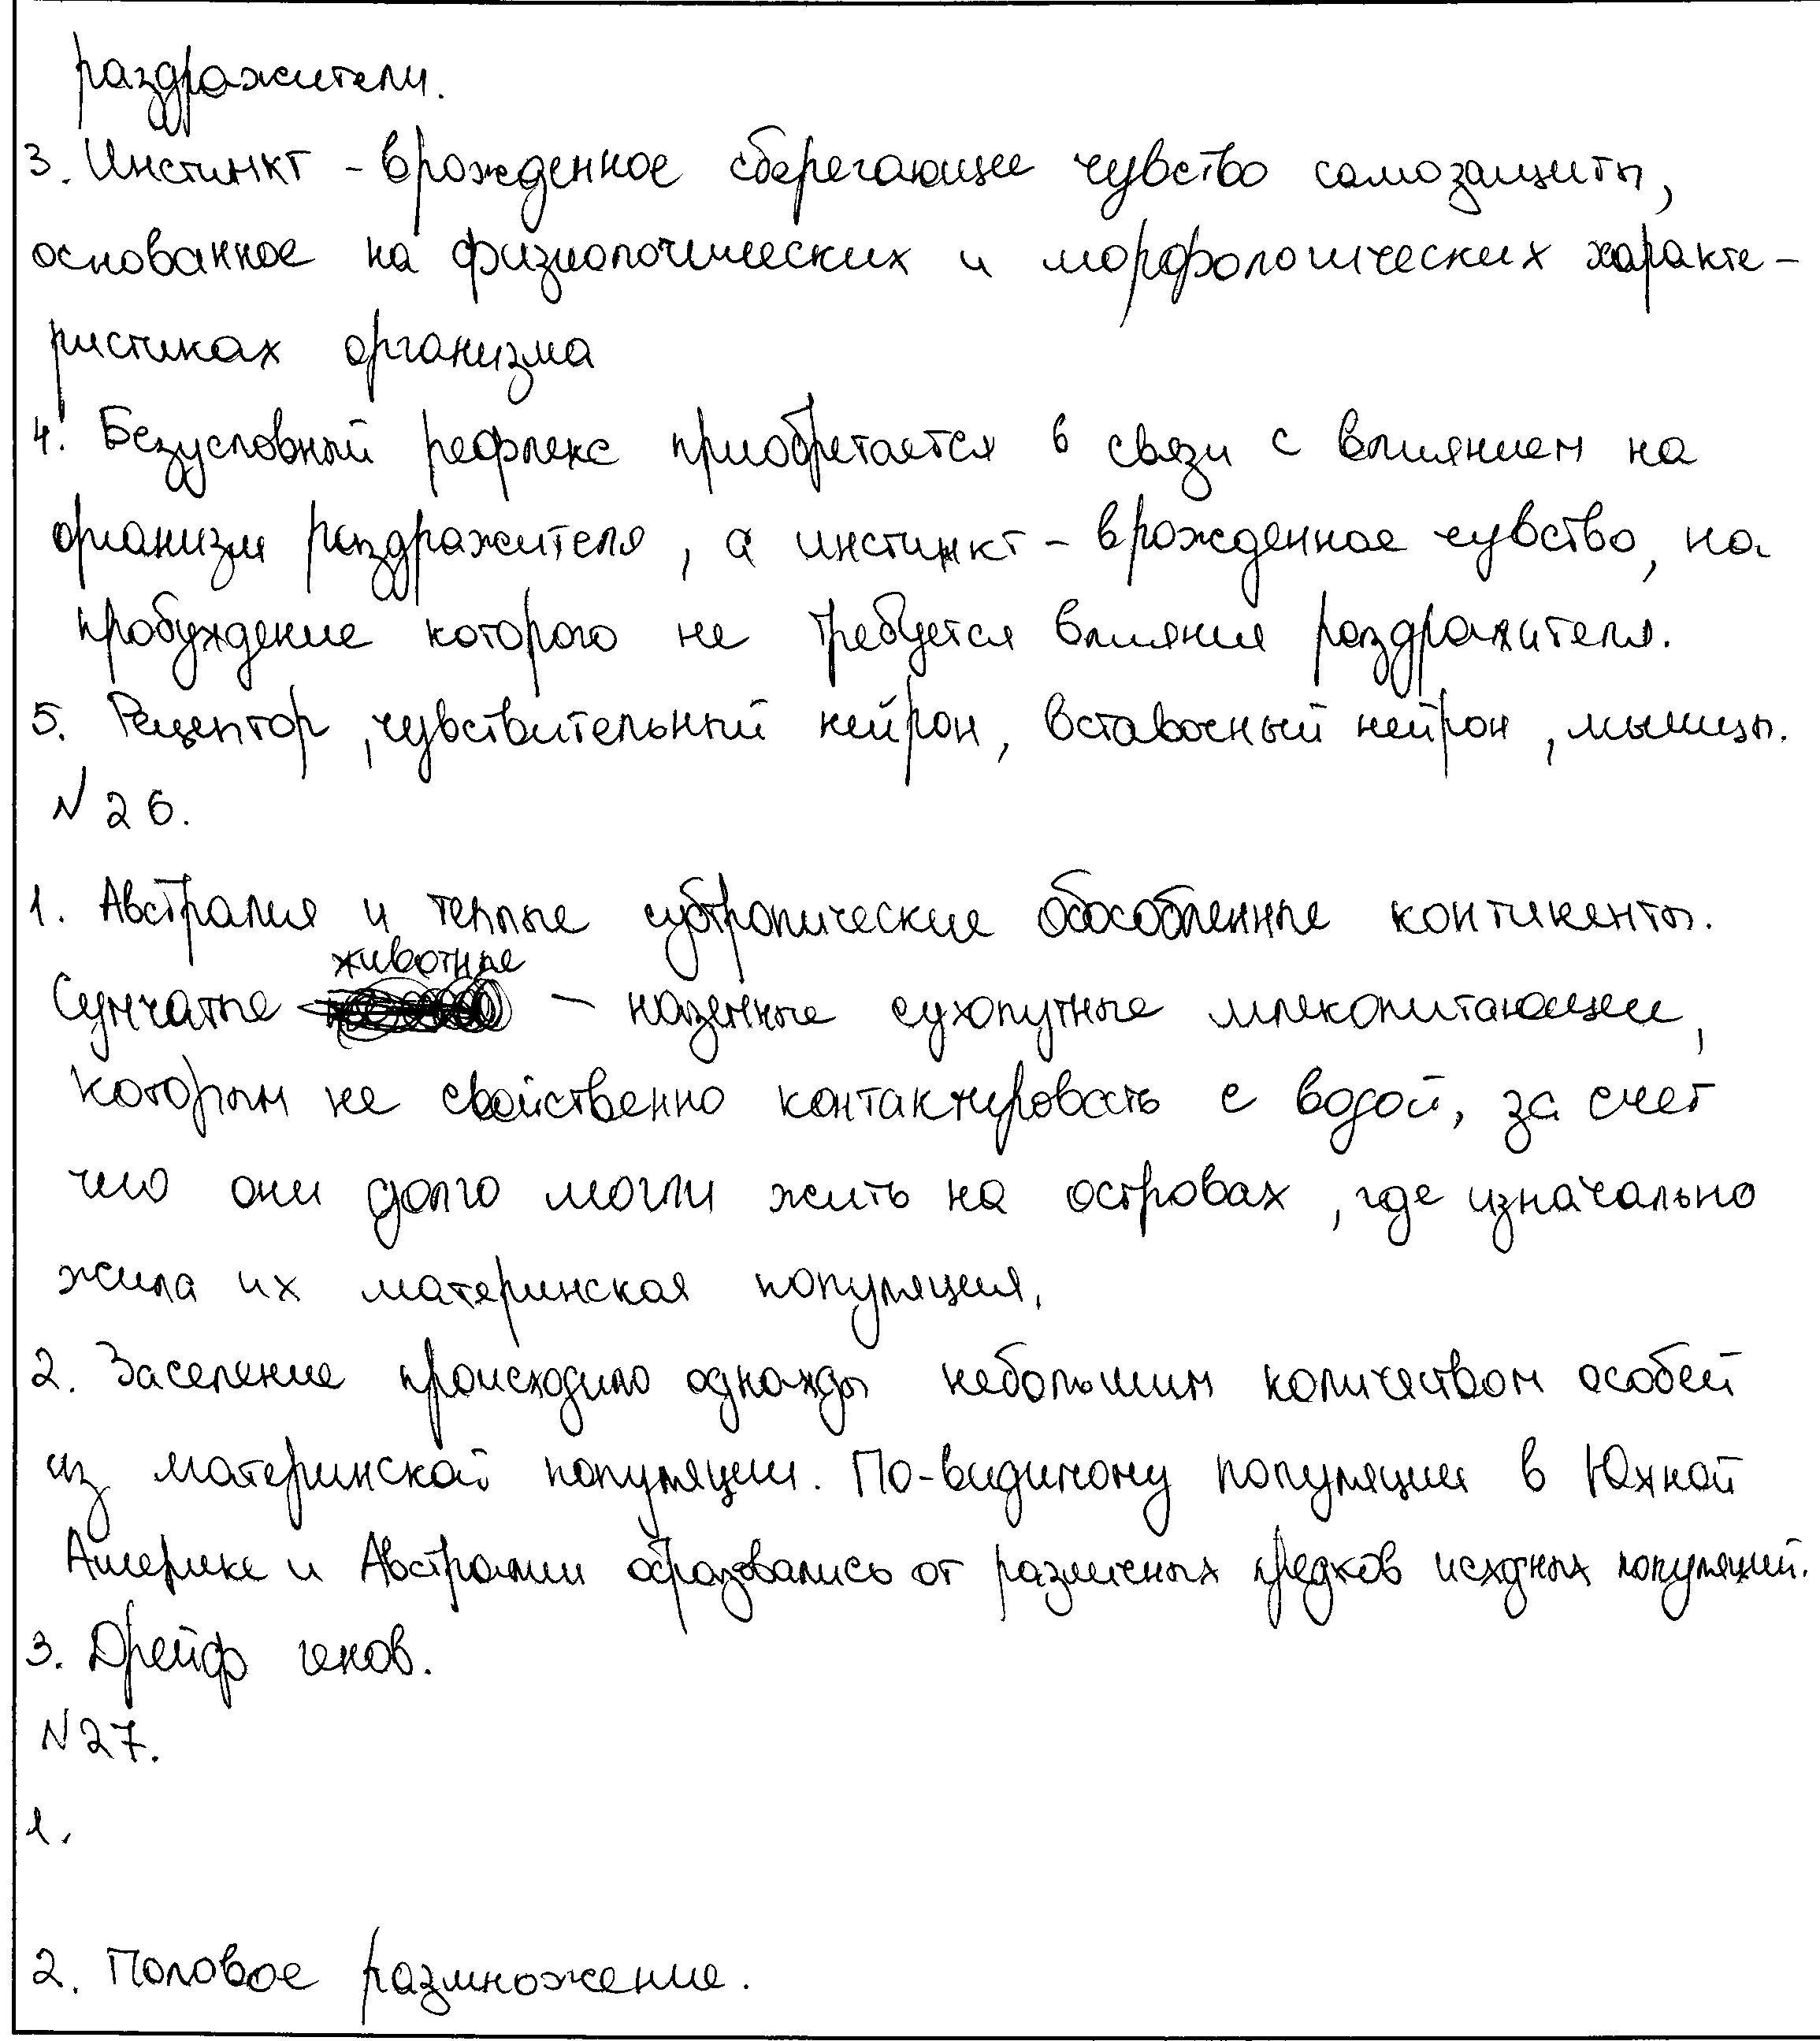 раздражители.
3. Инстинкт - врожденное сберегающее чувство самозащиты,
основанное на физиологических и морфологических характе-
ристиках организма
4. Безусловный рефлекс приобретается в связи с влиянием на
организм раздражителя, а инстинкт - врожденное чувство, на
пробуждение которого не требуется влияния раздражителя.
5. Рецептор, чувствительный нейрон, вставочный нейрон, мышцы.
№ 26.
1. Австралия и теплые субтропические обособленные континенты.
животные
Сумчатые - наземные сухопутные млекопитающие,
которым не свойственно контактировать с водой, за счет
чего они долго могли жить на островах, где изначально
жила их материнская популяция.
2. Заселение происходило однажды небольшим количеством особей
из материнской популяции. По-видимому популяции в Южной
Америке и Австралии образовались от различных предков исходных популяций.
3. Дрейф генов.
№ 27.
1.
2. Половое размножение.